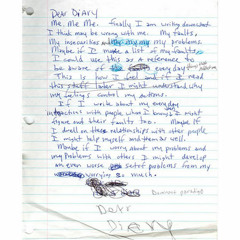 Dear Diary
Me. Me. Me. Finally I am writing down what
I think may be wrong with me. My faults,
My insecurities and my problems
Maybe if I made a list of my faults
I could use this as a reference
to be aware of everyday
This is how I feel and if I read
this later I might understand why
my feelings control my actions.
If I write about my everyday
interactions with people when I bring I might
figure out their faults too. Maybe if
I dwell on these relationships with other people
I might help myself and them as well.
Maybe if I worry about my problems and
my problems with others I might develop
an even worse set of problems from my
worrying so much.
Dear
Diary